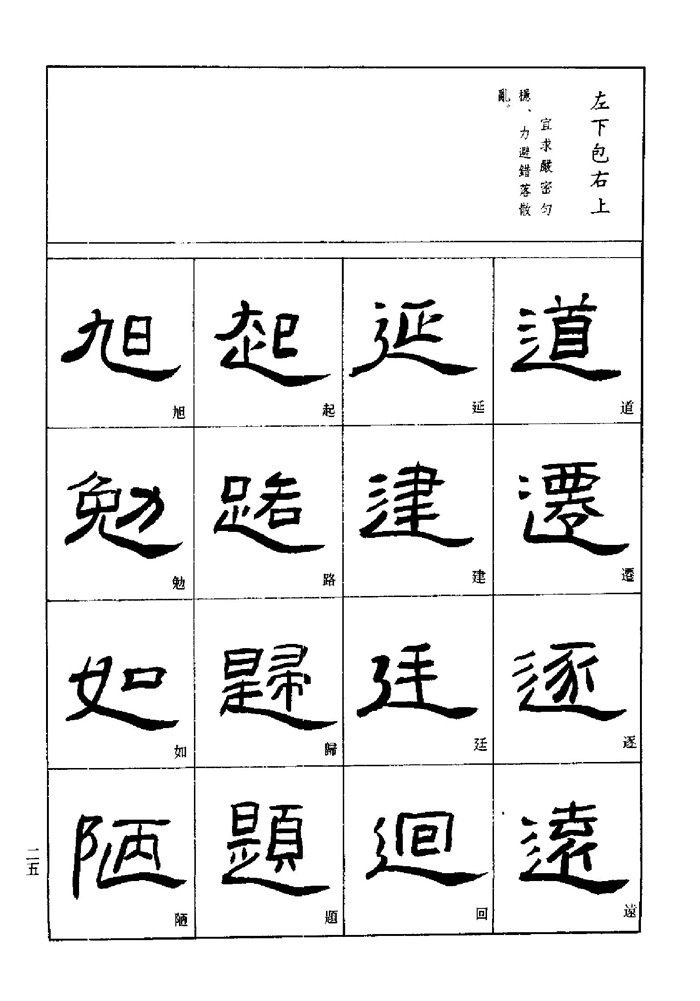 左下包右上
宜求嚴密勻
穩、力避錯落散
亂。
道
道
遷
遷
逐
逐
遠
遠
延
延
建
建
廷
廷
迴
回
起
起
路
路
歸
歸
題
題
旭
旭
勉
勉
如
如
陋
陋
二五